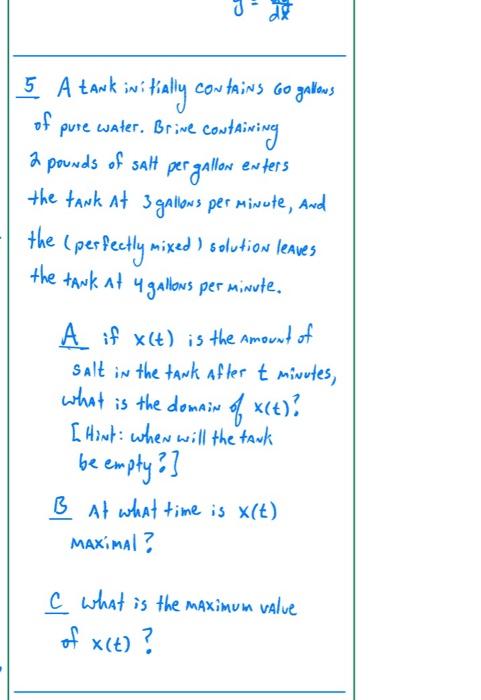 5 A tank initially contains 60 gallons
of pure water. Brine containing
2 pounds of salt per gallon enters
the tank at 3 gallons per minute, and
the (perfectly mixed) solution leaves
the tank at 4 gallons per minute.
A if x(t) is the amount of
salt in the tank after t minutes,
what is the domain of x(t)?
[Hint: when will the tank
be empty?]
B At what time is x(t)
maximal?
C what is the maximum value
of x(t)?